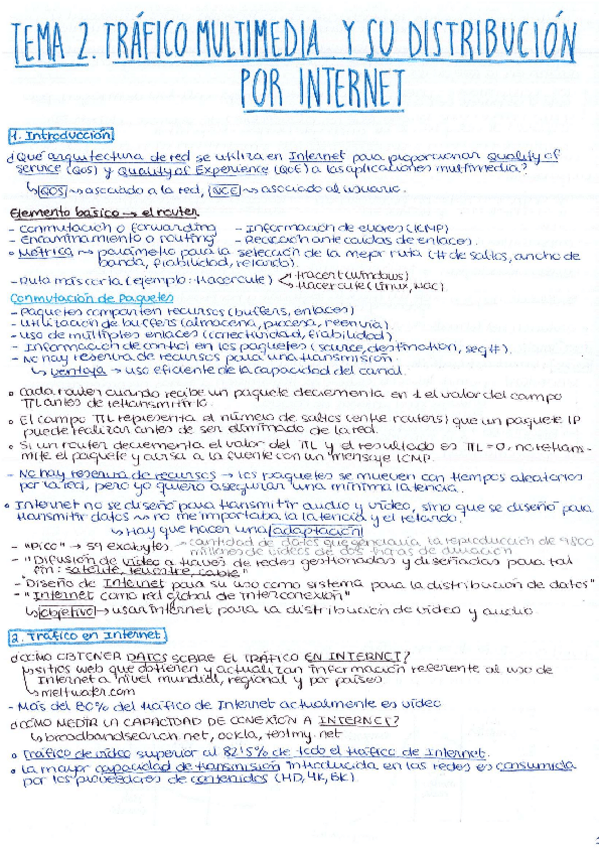 TEMA 2. TRÁFICO MULTIMEDIA Y SU DISTRIBUCIÓN
POR INTERNET
1. Introducción
¿Qué arquitectura de red se utiliza en Internet para proporcionar Quality of
Service (QoS) y Quality of Experience (QoE) a las aplicaciones multimedia?
↳ QOS ⇝ asociado a la red, QOE ⇝ asociado al usuario.
Elemento básico → el router
- Conmutación o forwarding - Información de errores (ICMP)
- Encaminamiento o routing - Reacción ante caídas de enlaces.
• Métrica → parámetro para la selección de la mejor ruta (# de saltos, ancho de
banda, fiabilidad, retardo).
- Ruta más corta (ejemplo: traceroute) tracert (Windows)
traceroute (Linux, Mac)
Conmutación de Paquetes
- Paquetes comparten recursos (buffers, enlaces)
- Utilización de buffers (almacena, procesa, reenvía).
- Uso de múltiples enlaces (conectividad, fiabilidad)
- Información de control en los paquetes (source, destination, seq#).
- No hay reserva de recursos para una transmisión.
↳ ventaja → uso eficiente de la capacidad del canal.
• Cada router cuando recibe un paquete decrementa en 1 el valor del campo
TTL antes de retransmitirlo.
• El campo TTL representa el número de saltos (entre routers) que un paquete IP
puede realizar antes de ser eliminado de la red.
• Si un router decrementa el valor del TTL y el resultado es TTL=0, no retrans-
mite el paquete y avisa a la fuente con un mensaje ICMP.
- No hay reserva de recursos → los paquetes se mueven con tiempos aleatorios
por la red, pero yo quiero asegurar una mínima latencia.
• Internet no se diseñó para transmitir audio y vídeo, sino que se diseñó para
transmitir datos ⇝ no me importaba la latencia y el retardo.
↳ Hay que hacer una adaptación
- "Pico" → 59 exabytes → cantidad de datos que generaría la reproducción de
millones de vídeos de dos horas de duración
- "Difusión de vídeo a través de redes gestionadas y diseñadas para tal
fin: satélite, terrestre, cable"
- "Diseño de Internet para su uso como sistema para la distribución de datos"
- "Internet como red global de interconexión"
↳ objetivo → usar Internet para la distribución de vídeo y audio.
2. Tráfico en Internet
¿CÓMO OBTENER DATOS SOBRE EL TRÁFICO EN INTERNET?
↳ sitios web que obtienen y actualizan información referente al uso de
Internet a nivel mundial, regional y por países
↳ meltwater.com
- Más del 80% del tráfico de Internet actualmente es vídeo
¿CÓMO MEDIR LA CAPACIDAD DE CONEXIÓN A INTERNET?
↳ broadbandsearch.net, ookla, testmy.net
• Tráfico de vídeo superior al 82'5% de todo el tráfico de Internet.
• La mayor capacidad de transmisión introducida en las redes es consumida
por los proveedores de contenidos (HD, 4K, 8K)